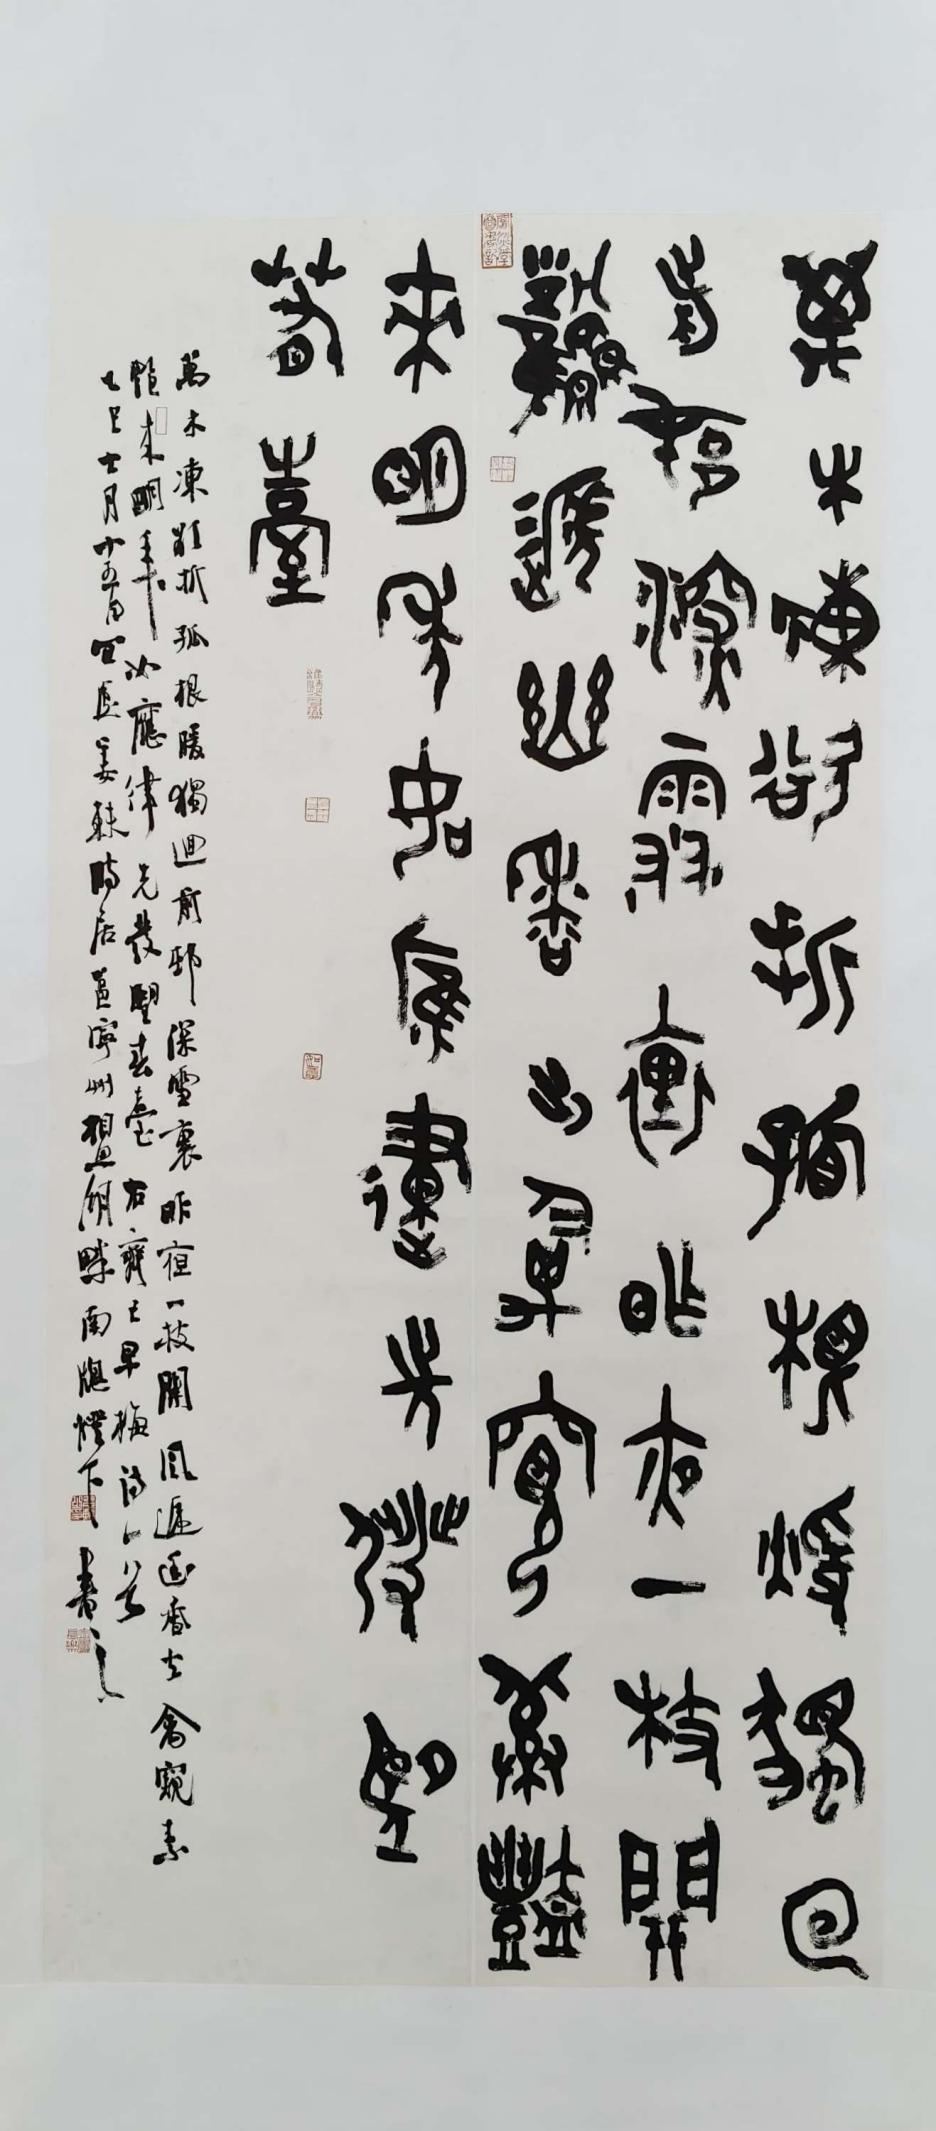 萬木凍欲折孤根煖獨回
前邨深雪裏昨夜一枝開
風遞幽香出禽窺素豔
來明年如應律先發望
春臺
萬木凍欲折孤根暖獨迴前邨深雪裏昨宿一枝開風遞幽香出禽窺素
豔來明年如應律先發望春臺右齊己早梅詩一首
乙巳十五日時居邕寧州相思湖畔南牕燈下書之